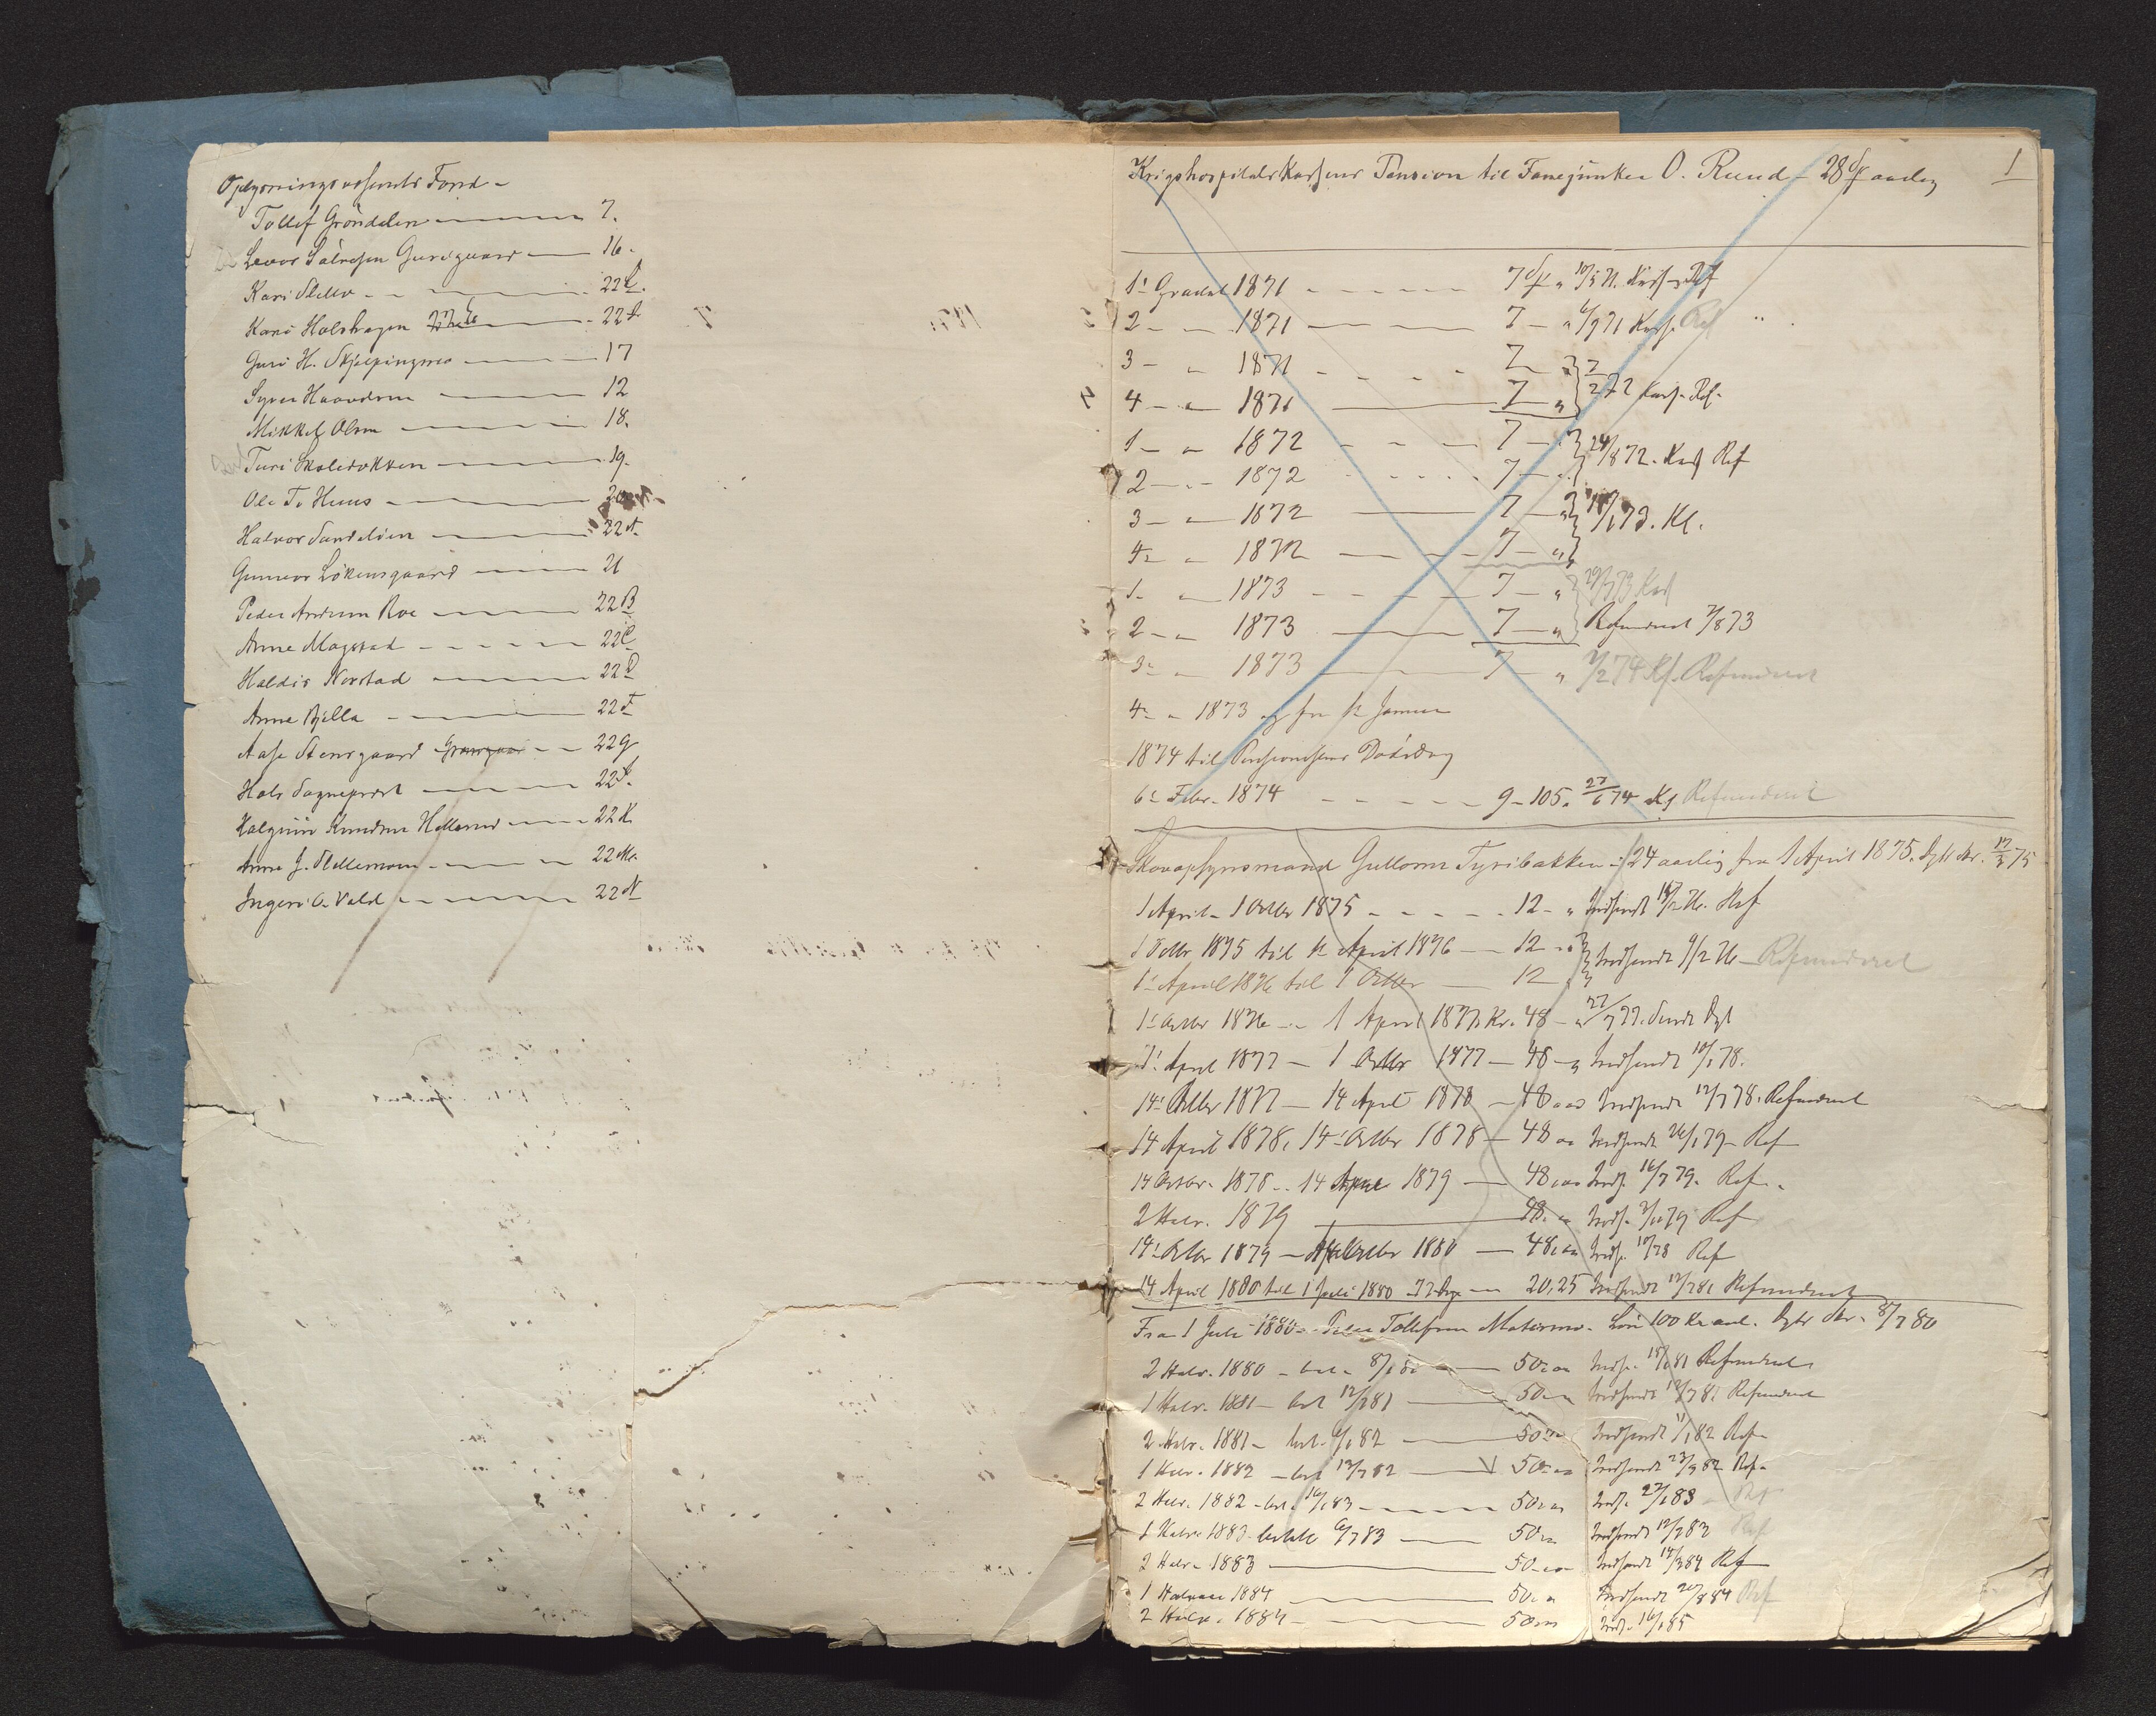 Oplysningsvesenets Fond -
Tollef Gröndalen 7.
Levor Gurigaard 16.
Kari 22
Kari Halshagen 22
Guri H. Skjelpingmo 17
Syver Haavdsen 12
Mikkel Olsen 18.
Turi Skoledokken 19.
Ole T. Huus 20
Halvor Sandelien 22
Gunvor Lökensgaard 21
Peder Andersen Roe 22 B
Anne Magstad 22 C
Haldis Norstad 22 D
Anne Bjella 22 F
Aase Stensgaard 22 g
Hols Sogneprest 22
Halgrim Knudsen Hellerud 22 K.
Anne J. Stillemoen 22 M.
Ingeri O. Vald 22 N
Krigshospitals Kassens Pension til Fanejunker O. Ruud - 28 aarlig
1
1ste Qvartal 1871 7 10/5 71. Kass. Ref
2 - " 1871 7 - " 6/7 71 Kass. Ref
3 - " 1871 7
4 - " 1871 7 - " 7/2 72 Kass. Ref.
1 - " 1872 7 -
2 - " 1872 7 - 24/8 72. Kass Ref
3 - " 1872 7 - "
4 - " 1872 7 - " /1 73. Kl.
1 - " 1873 7 - " 29/7 73 Kass
2 - " 1873 7 - " Refunderet 7/8 73
3 - " 1873 7 " 7/2 74 Kf. Refunderet
4 - " 1873 og fra 1ste Januar
1874 til Pensionistens Dödsdag
6te Febr. 1874 9 - 105. 27/6 74 Kf Refunderet
Skovopsynsmand Guttorm Tyribakken 24 aarlig fra 1 April 1875. Dpts Skr. 17/3 75
1 April - 1 Octbr 1875 12 - " Indsendt Ref
1 Octbr 1875 til 1ste April 1876 12 - "
1ste April 1876 til 1 Octbr 12 " Indsendt 9/12 76 - Refunderet
1ste Octbr 1876 - 1 April 1877 Kr. 48 - " 27/7 77. Sendt Dpt
1ste April 1877 - 1 Octbr 1877 - 48 - " Indsendt 10/1 78.
14de Octbr 1877 - 14 April 1878 - 48,00 Indsendt 12/7 78. Refunderet
14 April 1878, 14de Octbr 1878 - 48,00 Indsendt 26/1 79 - Ref
14 Octbr. 1878 - 14 April 1879 48,00 Inds. 16/7 79. Ref.
2 Halv. 1879 48.00 Inds. 79 Ref
14de Octbr 1879 - 1880 48,00 Inds. Ref
14 April 1880 til 1 Juli 1880 - 77 Dage 20,25 Indsendt 12/7 81 Refunderet
Fra 1 Juli 1880 Tollefsen Lön 100 Kr aarl. Dpts Skr. 8/7 80
2 Halv. 1880 - bet. 8/1 81 50,00 Inds. 18/1 81 Refunderet
1 Halv. 1881 - bet 12/7 81 50,00 Indsendt 12/7 81 Refunderet
2 Halv. 1881 - bet. 6/1 82 50,00 Indsendt 11/1 82 Ref.
1 Halv. 1882 - bet 12/7 82 50,00 Indsendt 23/9 82 Ref.
2 Halv. 1882 - bet. 16/1 83 50,00 Inds. 27/1 83 Ref
1 Halv. 1883 betalt 6/7 83 50,00 Indsendt 12/7 83 Ref
2 Halv. 1883 50,00 Indsendt 14/3 84 Ref
1 Halvaar 1884 50,00 Indsendt 20/8 84 Ref
2 Halv. 1884 50,00 Inds. 16/1 85